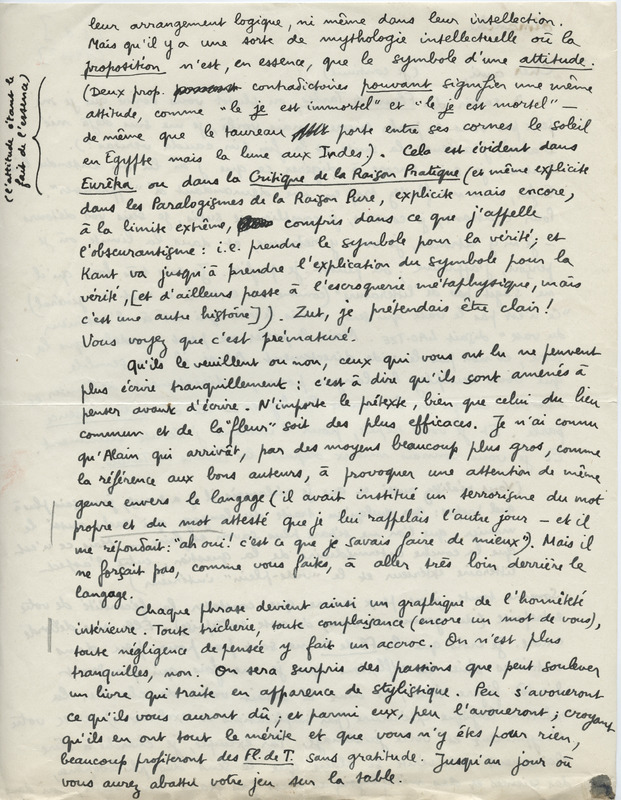 leur arrangement logique, ni même dans leur intellection.
Mais qu'il y a une sorte de mythologie intellectuelle où la
proposition n'est, en essence, que le symbole d'une attitude.
(Deux prop. contradictoires pouvant signifier une même
attitude, comme "le je est immortel" et "le je est mortel" —
de même que le taureau porte entre ses cornes le soleil
en Egypte mais la lune aux Indes.). Cela est évident dans
Eurêka ou dans la Critique de la Raison Pratique (et même explicite
dans les Paralogismes de la Raison Pure, explicite mais encore,
à la limite extrême, compris dans ce que j'appelle
l'obscurantisme : i.e. prendre le symbole pour la vérité ; et
Kant va jusqu'à prendre l'explication du symbole pour la
vérité, [et d'ailleurs passe à l'escroquerie métaphysique, mais
c'est une autre histoire]). Zut, je prétendais être clair !
Vous voyez que c'est prématuré.
Qu'ils le veuillent ou non, ceux qui vous ont lu ne peuvent
plus écrire tranquillement : c'est à dire qu'ils sont amenés à
penser avant d'écrire. N'importe le prétexte, bien que celui du lieu
commun et de la "fleur" soit des plus efficaces. Je n'ai connu
qu'Alain qui arrivât, par des moyens beaucoup plus gros, comme
la référence aux bons auteurs, à provoquer une attention de même
genre envers le langage (il avait institué un terrorisme du mot
propre et du mot attesté que je lui rappelais l'autre jour — et il
me répondait : "ah oui ! c'est ce que je savais faire de mieux"). Mais il
ne forçait pas, comme vous faites, à aller très loin derrière le
langage.
Chaque phrase devient ainsi un graphique de l'honnêteté
intérieure. Toute tricherie, toute complaisance (encore un mot de vous),
toute négligence de pensée y fait un accroc. On n'est plus
tranquilles, non. On sera surpris des passions que peut soulever
un livre qui traite en apparence de stylistique. Peu s'avoueront
ce qu'ils vous auront dû ; et parmi eux, peu l'avoueront ; croyant
qu'ils en ont tout le mérite et que vous n'y êtes pour rien,
beaucoup profiteront des Fl. de T. sans gratitude. Jusqu'au jour où
vous aurez abattu votre jeu sur la table.
(l'attitude étant le
fait de l'essence)